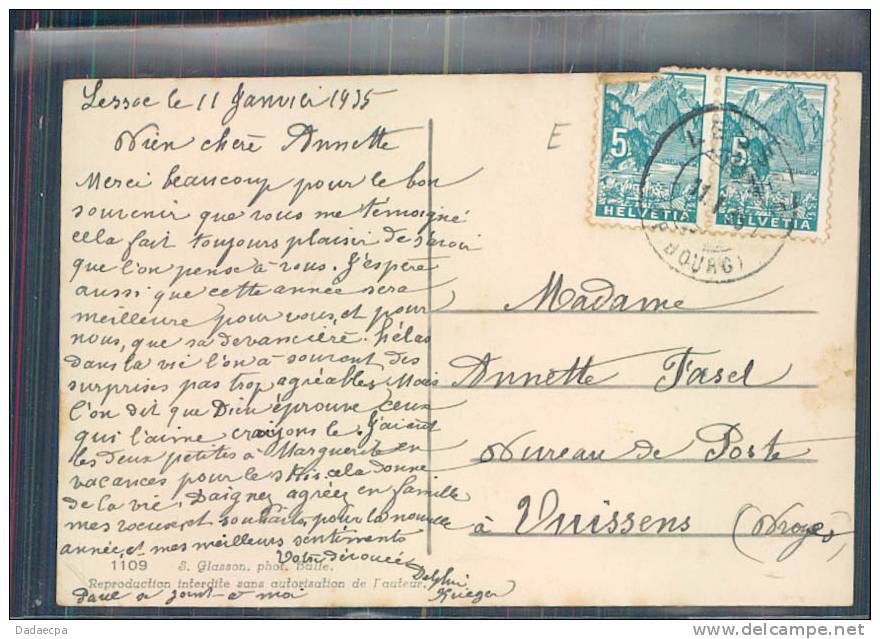 Lessoc le 11 Janvier 1935
Bien chère Annette
Merci beaucoup pour le bon
souvenir que vous me témoigné
cela fait toujours plaisir de savoir
que l'on pense à vous. J'espère
aussi que cette année sera
meilleure pour vous, et pour
nous, que sa devancière. hélas
dans la vie l'on à souvent des
surprises pas trop agréables, Mais
l'on dit que Dieu éprouve ceux
qui l'aime croiyons le. J'aient
les deux petites à Marguerite en
vacances pour le s Rois, cela donne
de la vie. Daignez agréez en famille
mes voeux, et souhaits, pour la nouvelle
année, et mes meilleurs sentiments
Votre dévouée
Delphine
Krieger
Paul a joint à moi
1109 S. Glasson, phot. Bulle.
Reproduction interdite sans autorisation de l'auteur.
E
5
HELVETIA
5
HELVETIA
Madame
Annette Fasel
Bureau de Poste
à Vuissens (Broye)
Dadaecpa
www.delcampe.net